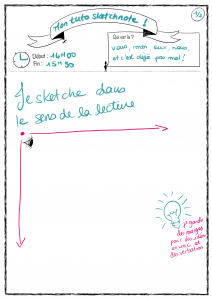 Mon tuto sketchnote !
1/2
Qui est là ?
vous, moi, eux, nous,
et c'est déjà pas mal !
Début : 14H00
Fin : 15H30
Je sketche dans
le sens de la lecture
je garde
des marges
pour des idées
en vrac et
des verbatims